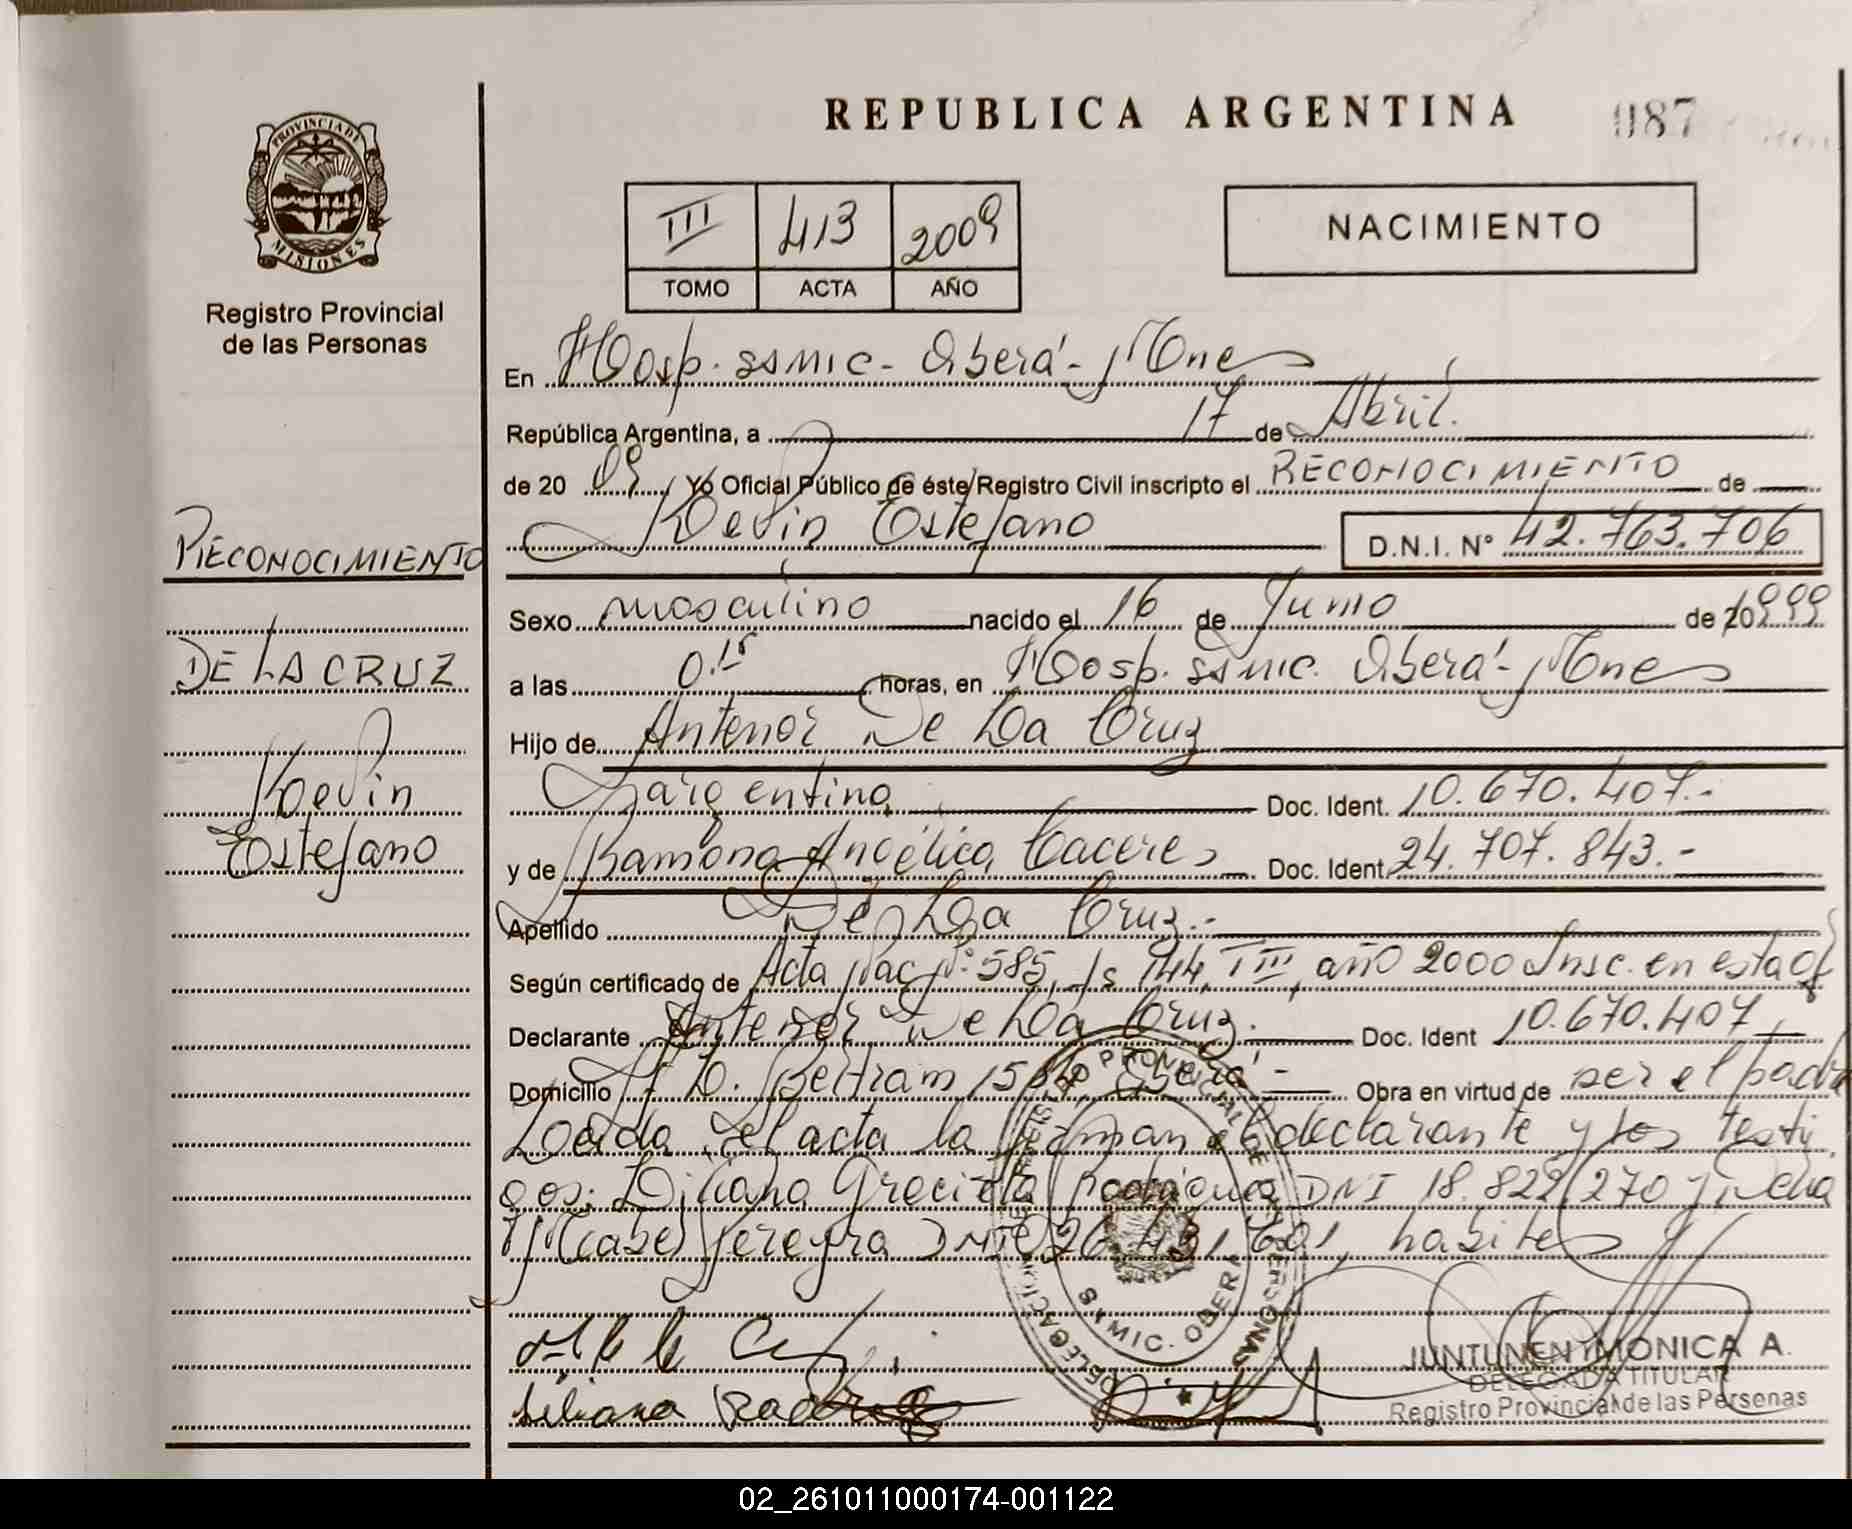 REPUBLICA ARGENTINA
087
PROVINCIA DE
MISIONES
Registro Provincial
de las Personas
III 413 2009
TOMO ACTA AÑO
NACIMIENTO
En Hosp. SAMIC - Oberá - Mnes
República Argentina, a 17 de Abril.
de 20 09 Yo Oficial Público de éste Registro Civil inscripto el RECONOCIMIENTO de
Kevin Estefano D.N.I. N° 42.763.706
RECONOCIMIENTO
DE LA CRUZ
Kevin
Estefano
Sexo masculino nacido el 16 de Junio de 1999
a las 0.15 horas, en Hosp. SAMIC. Oberá - Mnes
Hijo de Antenor De La Cruz
argentino Doc. Ident. 10.670.407.-
y de Ramona Angélica Caceres Doc. Ident. 24.707.843.-
Apellido De La Cruz.-
Según certificado de Acta Nac. N°: 585, Fs 144, T III, año 2000 Insc. en esta Of
Declarante Antenor De La Cruz. Doc. Ident 10.670.407
Domicilio Beltram Oberá - Obra en virtud de ser el padre
Leída el acta la firman el declarante y los testi
gos: Liliana Graciela Rodriguez DNI 18.822.270 y
Pereyra DNI 26. habiles
Liliana Rodrig
REGISTRO PROVINCIAL DE LAS PERSONAS
DELEGACION
SAMIC. OBERA
JUNTUNEN MONICA A.
DELEGADA TITULAR
Registro Provincial de las Personas
02_261011000174-001122